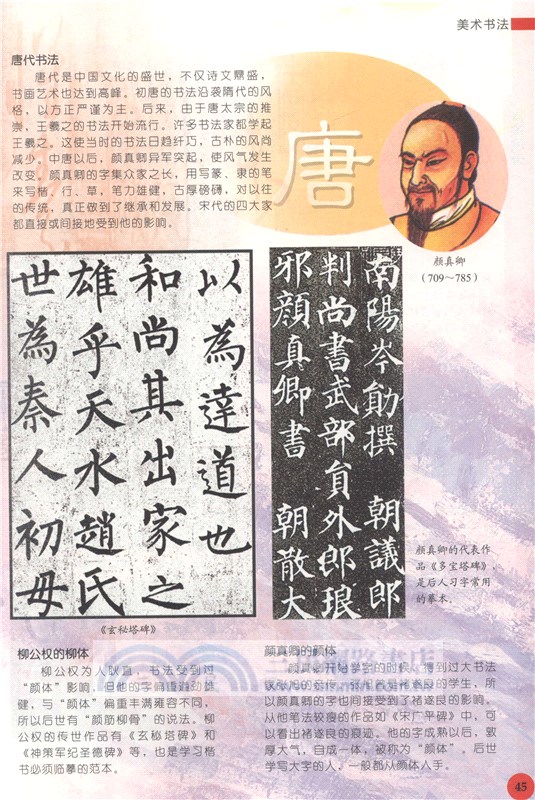 美术书法
唐代书法
唐代是中国文化的盛世，不仅诗文鼎盛，
书画艺术也达到高峰。初唐的书法沿袭隋代的风
格，以方正严谨为主。后来，由于唐太宗的推
崇，王羲之的书法开始流行。许多书法家都学起
王羲之。这使当时的书法日趋纤巧，古朴的风尚
减少。中唐以后，颜真卿异军突起，使风气发生
改变。颜真卿的字集众家之长，用写篆、隶的笔
来写楷、行、草，笔力雄健，古厚磅礴，对以往
的传统，真正做到了继承和发展。宋代的四大家
都直接或间接地受到他的影响。
唐
颜真卿
（709～785）
以為達道也
和尚其出家之
雄乎天水趙氏
世為秦人初母
《玄秘塔碑》
南陽岑勛撰 朝議郎
判尚書武部員外郎琅
邪顏真卿書 朝散大
颜真卿的代表作
品《多宝塔碑》，
是后人习字常用
的摹本。
柳公权的柳体
柳公权为人耿直，书法受到过
“颜体”影响，但他的字偏重遒劲雄
健，与“颜体”偏重丰满雍容不同，
所以后世有“颜筋柳骨”的说法。柳
公权的传世作品有《玄秘塔碑》和
《神策军纪圣德碑》等，也是学习楷
书必须临摹的范本。
颜真卿的颜体
颜真卿开始学字的时候，得到过大书法
家张旭的亲传。张旭曾是褚遂良的学生，所
以颜真卿的字也间接受到了褚遂良的影响。
从他笔法较瘦的作品如《宋广平碑》中，可
以看出褚遂良的痕迹。他的字成熟以后，敦
厚大气，自成一体，被称为“颜体”。后世
学写大字的人，一般都从颜体入手。
45